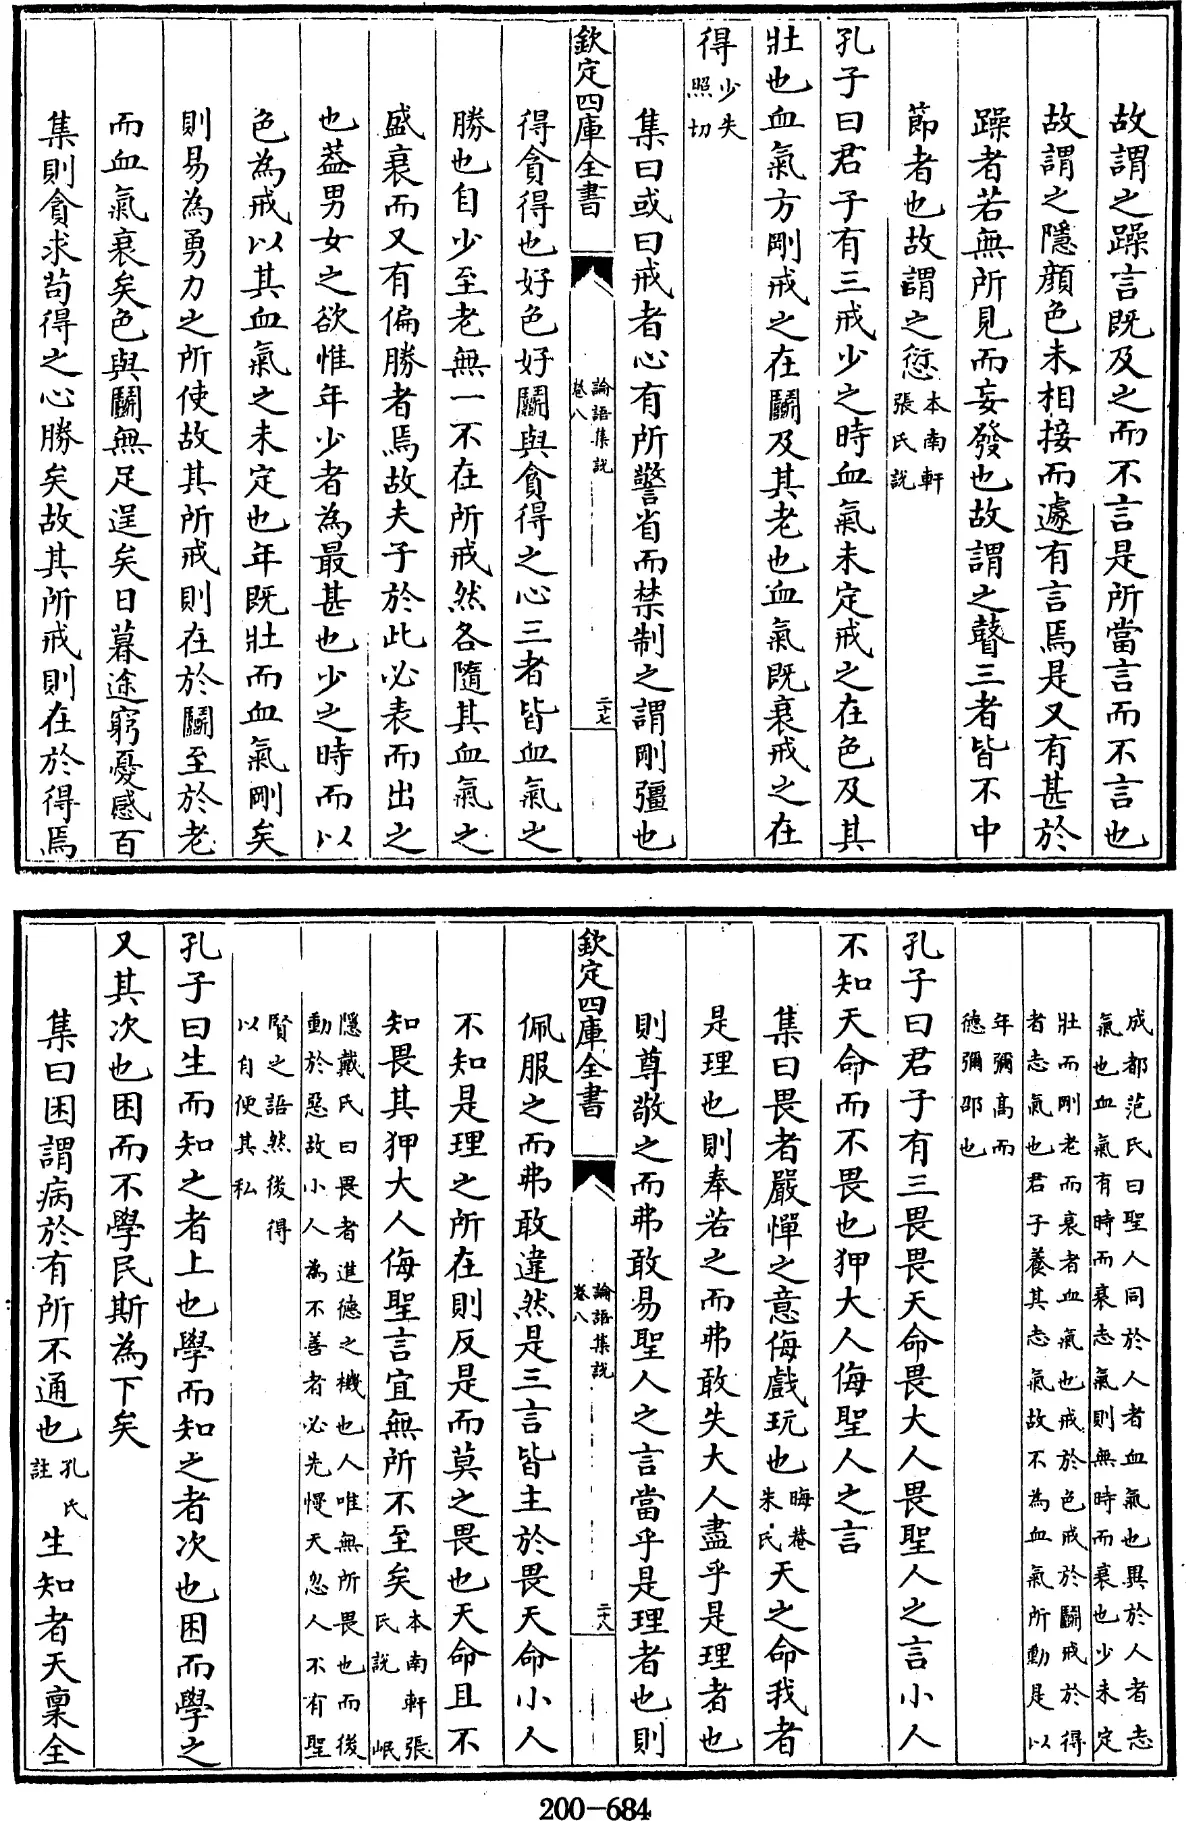 故謂之躁言既及之而不言是所當言而不言也
故謂之隱顔色未相接而遽有言焉是又有甚於
躁者若無所見而妄發也故謂之瞽三者皆不中
節者也故謂之愆本南軒張氏説
孔子曰君子有三戒少之時血氣未定戒之在色及其
壯也血氣方剛戒之在鬭及其老也血氣既衰戒之在
得少失照切
集曰或曰戒者心有所警省而禁制之謂剛彊也
欽定四庫全書 論語集説卷八 二十七
得貪得也好色好鬭與貪得之心三者皆血氣之
勝也自少至老無一不在所戒然各隨其血氣之
盛衰而又有偏勝者焉故夫子於此必表而出之
也葢男女之欲惟年少者為最甚也少之時而以
色為戒以其血氣之未定也年既壯而血氣剛矣
則易為勇力之所使故其所戒則在於鬭至於老
而血氣衰矣色與鬭無足逞矣日暮途窮憂慼百
集則貪求苟得之心勝矣故其所戒則在於得焉
成都范氏曰聖人同於人者血氣也異於人者志
氣也血氣有時而衰志氣則無時而衰也少未定
壯而剛老而衰者血氣也戒於色戒於鬭戒於得
者志氣也君子養其志氣故不為血氣所動是以
年彌高而
德彌邵也
孔子曰君子有三畏畏天命畏大人畏聖人之言小人
不知天命而不畏也狎大人侮聖人之言
集曰畏者嚴憚之意侮戲玩也晦菴朱氏天之命我者
是理也則奉若之而弗敢失大人盡乎是理者也
則尊敬之而弗敢易聖人之言當乎是理者也則
欽定四庫全書 論語集説卷八 二十八
佩服之而弗敢違然是三言皆主於畏天命小人
不知是理之所在則反是而莫之畏也天命且不
知畏其狎大人侮聖言宜無所不至矣本南軒張氏説 岷
隱戴氏曰畏者進德之機也人唯無所畏也而後
動於惡故小人為不善者必先慢天忽人不有聖
賢之語然後得
以自便其私
孔子曰生而知之者上也學而知之者次也困而學之
又其次也困而不學民斯為下矣
集曰困謂病於有所不通也孔氏註 生知者天稟全
200-684